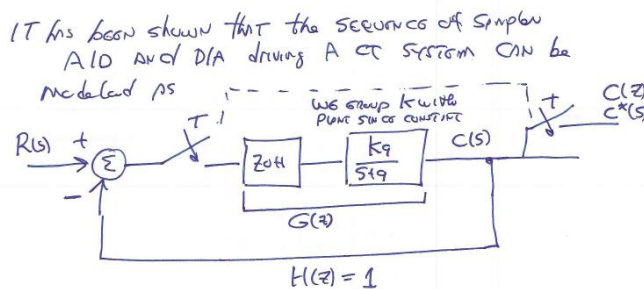 IT has been shown that the sequence of sampler
A/D AND D/A driving A CT system can be
modeled as
WE GROUP K with
PLANT SINCE CONSTANT
C(Z)
C*(S)
R(s)
+
Σ
−
T
ZOH
Ka
S+a
C(S)
T
G(z)
H(z) = 1